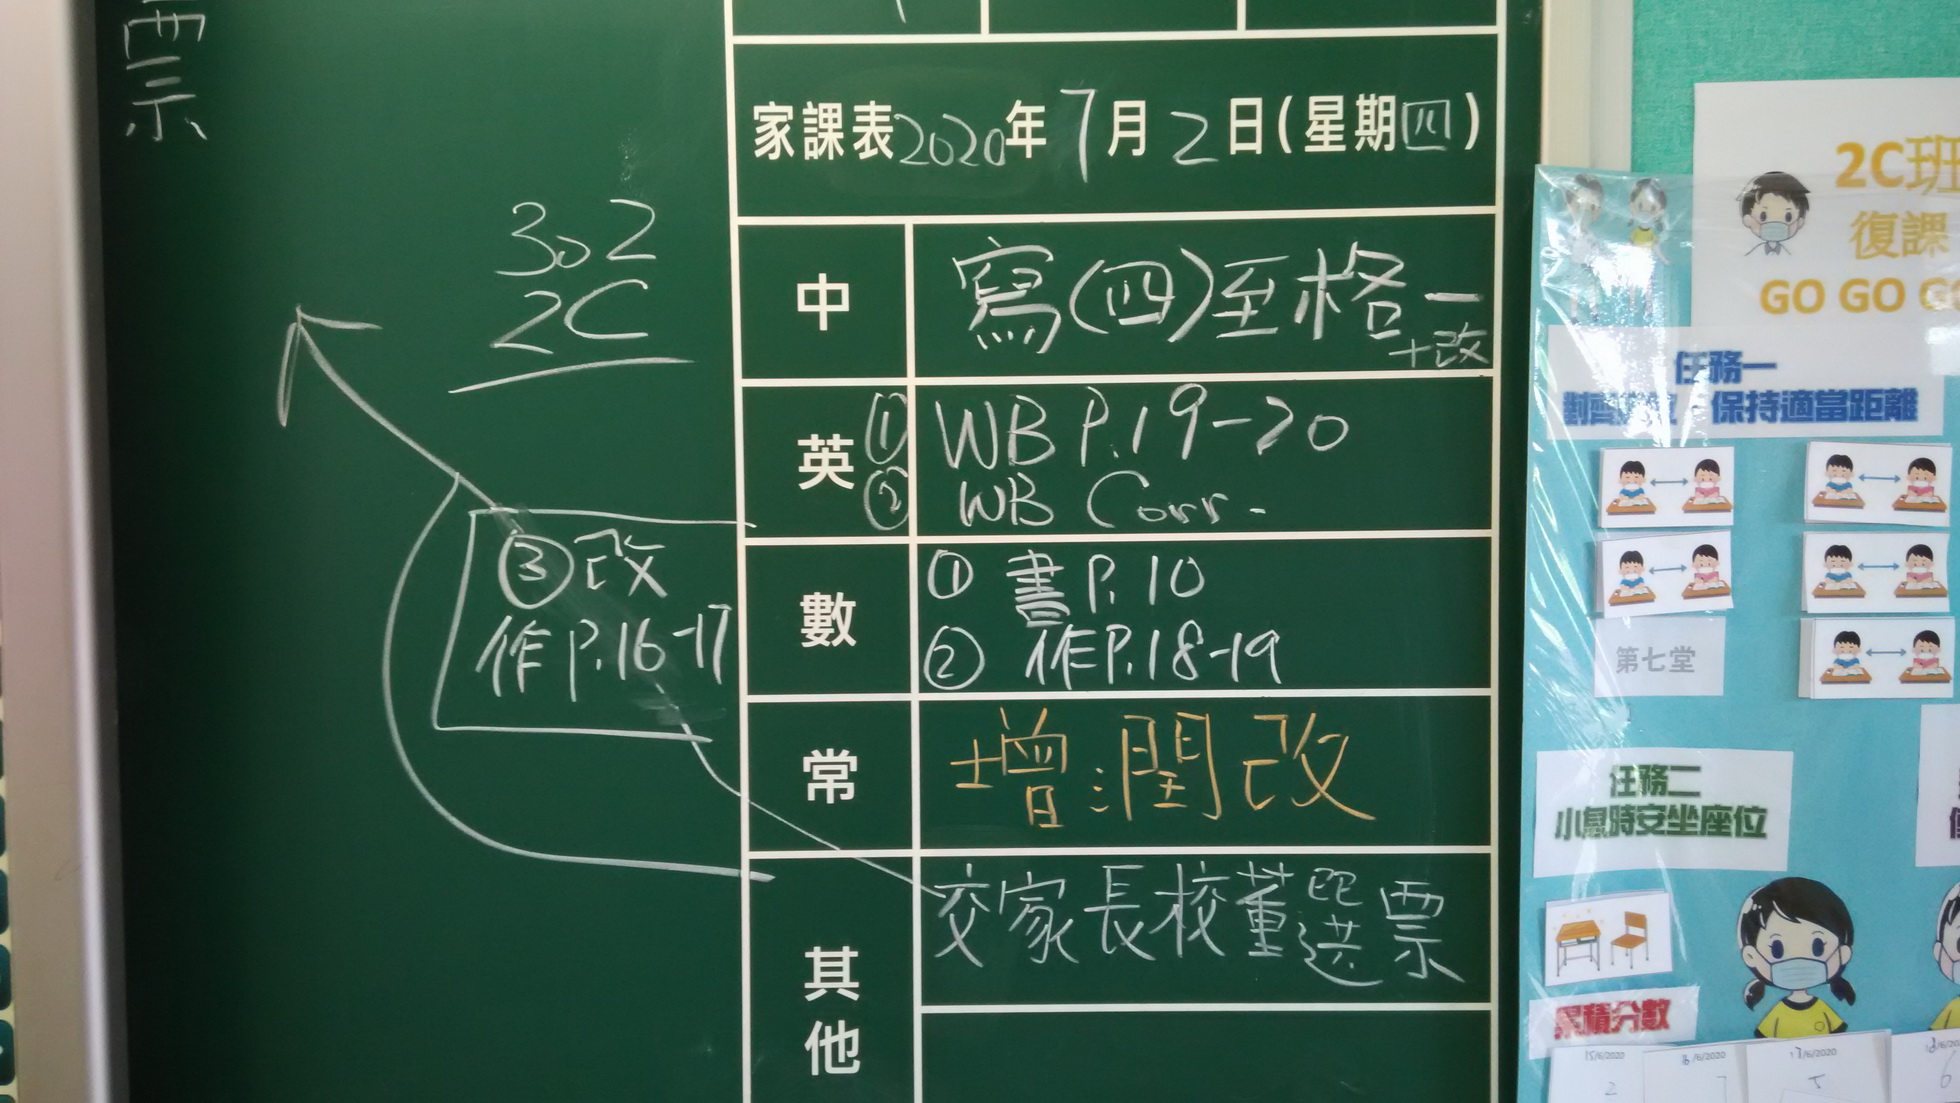 票
家課表2020年7月2日(星期四)
302
2C
中
寫(四)至格一
+改
英
① WB P.19-20
② WB Corr.
數
① 書P.10
② 作P.18-19
③改
作P.16-17
常
增潤改
其他
交家長校董選票
2C班
復課
GO GO
任務一
保持適當距離
第七堂
任務二
小息時安坐座位
累積分數
15/6/2020
17/6/2020
2
7
5
6